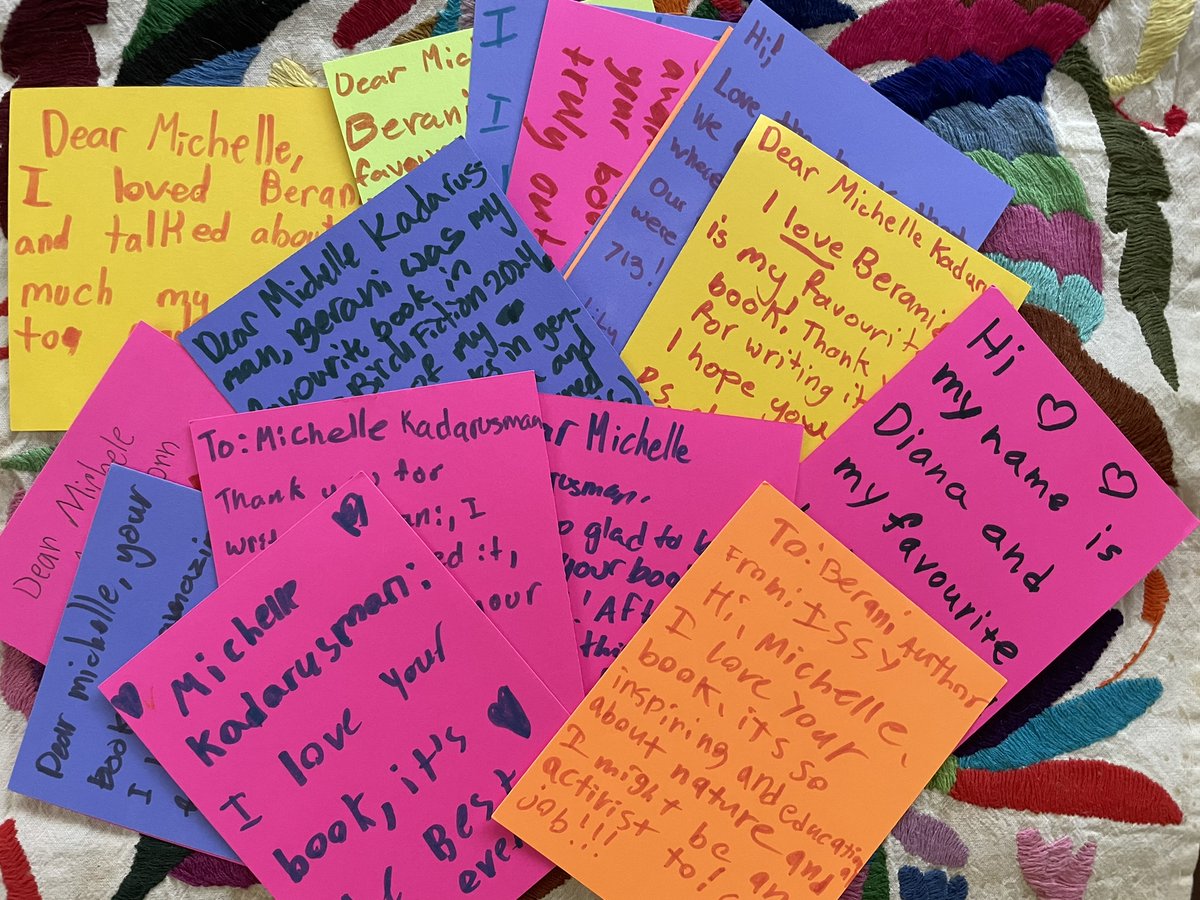 Dear Michelle,
I loved Beran
and talked about
much my
to
Dear Mic
Berani
favou
I
I
your
truly
Hi!
Love the
We
where
Our
were
713!
Dear Michelle Kadar
I love Berani
is my favourit
book. Thank
for writing it
I hope you
P.S.
Dear Michelle Kadarus-
man, Berani was my
favourite book in
Birch Fiction 2024
of my
in gen
and
Hi
my name is
Diana and
my favourite
Dear Michele
To: Michelle Kadarusman
Thank you for
Berani, I
loved it,
your
ar Michelle
rusman.
so glad to b
your boo
! Afte
thi
Dear michelle, your
book
amazi
I
Michelle
Kadarusman:
I love your
book, it's
Best
ever
To: Berani Author
From: ISSY
Hi, Michelle,
I love your
book, it's so
inspiring and education
about nature and
I might be an
activist to!
job!!!